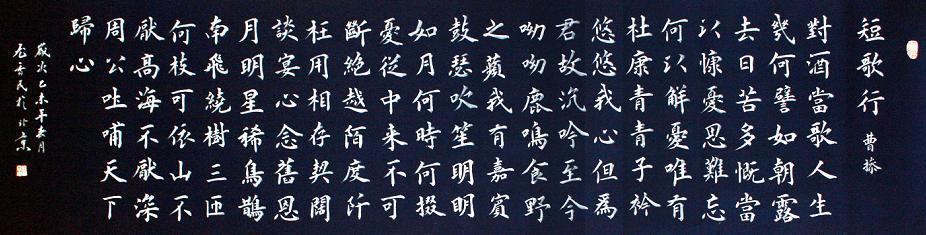 短歌行 曹操
對酒當歌人生
幾何譬如朝露
去日苦多慨當
以慷憂思難忘
何以解憂唯有
杜康青青子衿
悠悠我心但爲
君故沉吟至今
呦呦鹿鳴食野
之蘋我有嘉賓
鼓瑟吹笙明明
如月何時何掇
憂從中来不可
斷絶越陌度阡
枉用相存契闊
談宴心念舊恩
月明星稀烏鵲
南飛繞樹三匝
何枝可依山不
厭高海不厭深
周公吐哺天下
歸心
歲次乙未年春月
民於北京